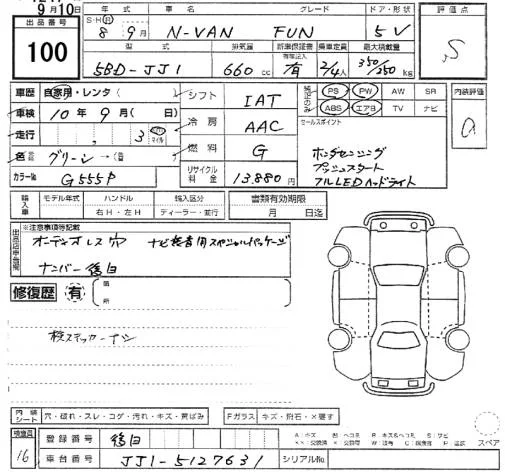 9月10日
出品番号
100
年式
車名
グレード
ドア・形状
評価点
S・H(R)
8 9月
N-VAN
FUN
5 V
S
型式
排気量
新車保証書
乗車定員
最大積載量
5BD-JJ1
660 cc
有
2/4人
350/250 kg
車歴
自家用・レンタ(
シフト
IAT
PS PW AW SR
ABS エアB TV ナビ
内装評価
車検
10年9月( 日)
冷房
AAC
セールスポイント
a
走行
3
燃料
G
ホンダセンシング
プッシュスタート
フルLEDヘッドライト
色
グリーン→(
カラーNo
G555P
リサイクル料金
13,880円
輸入車
モデル年式
ハンドル
輸入区分
書類有効期限
右H・左H
ディーラー・並行
月 日迄
※注意事項等記載
オーディオレス穴 ナビ装着用スペシャルパッケージ
ナンバー後日
修復歴
有
箇所
検ステッカーナシ
内装シート
穴・破れ・スレ・コゲ・汚れ・キズ・黄ばみ
Fガラス
キズ・飛石・×要す
スペア
検査員
16
登録番号
後日
車台番号
JJ1-5127631
シリアルNo.